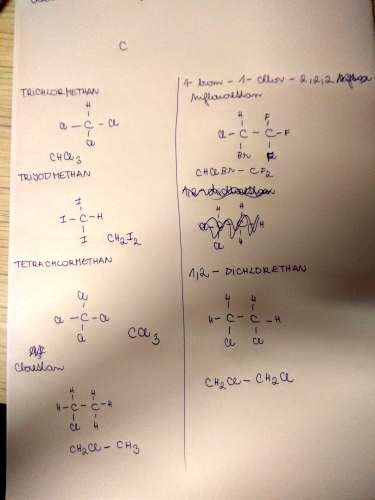 C
TRICHLORMETHAN
H
Cl - C - Cl
Cl
CHCl3
TRIJODMETHAN
I
I - C - H
I
CH2I2
TETRACHLORMETHAN
Cl
Cl - C - Cl
Cl
CCl3
Chlorethan
H H
H - C - C - H
Cl H
CH2Cl - CH3
1-brom-1-chlor-2,2,2
trifluorethan
H F
Cl - C - C - F
Br F
CHClBr - CF2
H
H
Cl
1,2-DICHLORETHAN
H H
H - C - C - H
Cl Cl
CH2Cl - CH2Cl